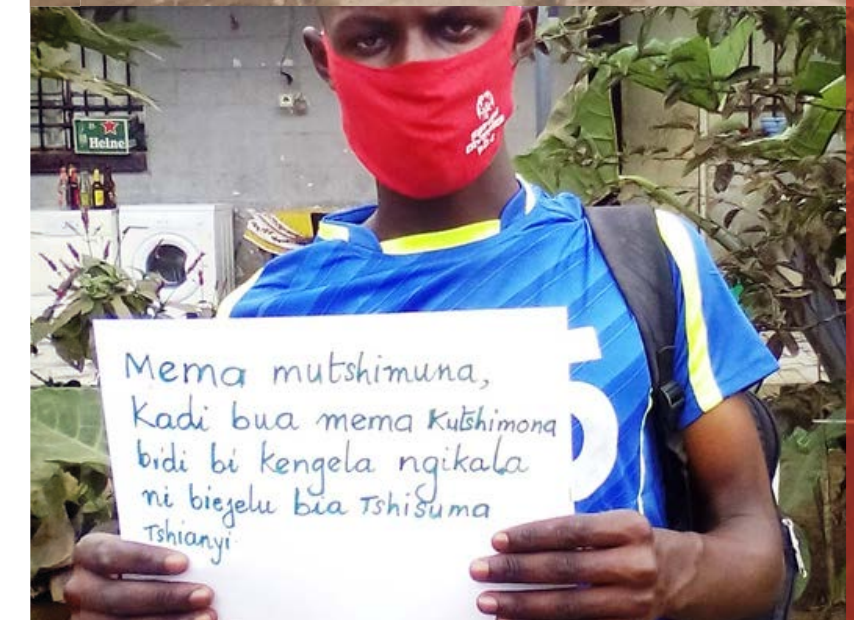 Heine
Mema mutshimuna,
Kadi bua mema Kutshimona
bidi bi kengela ngikala
ni biejelu bia Tshisuma
Tshianyi
6